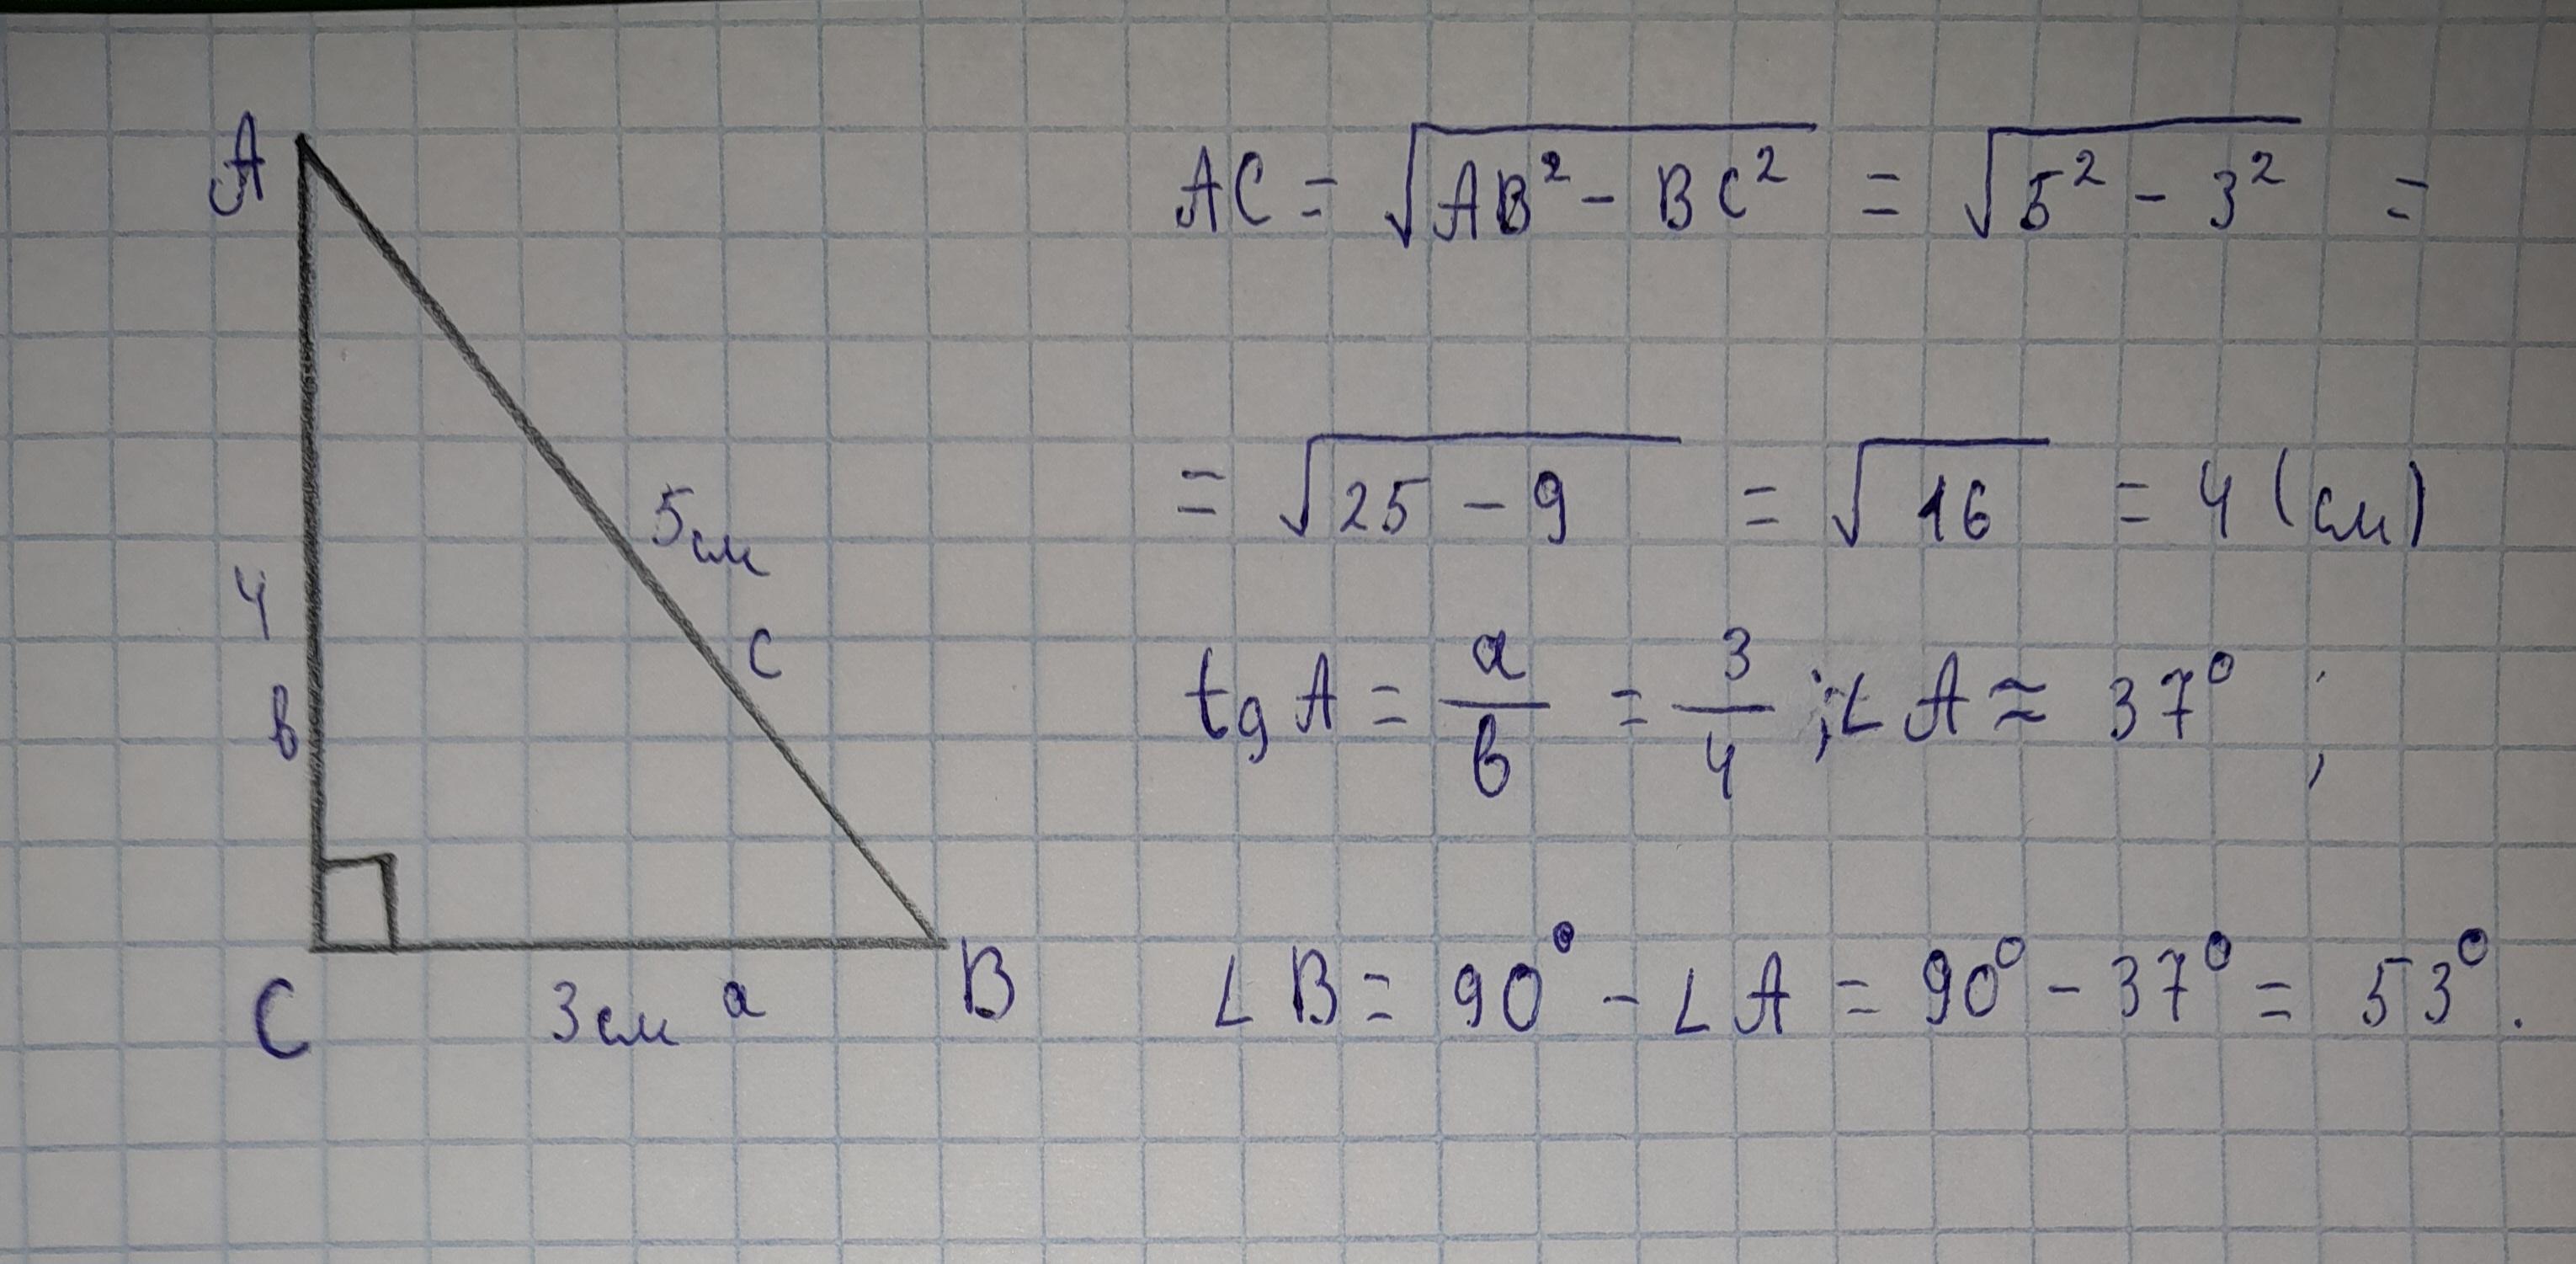 A
5см
4
c
в
C
3см a
B
AC = √(AB² - BC²) = √(5² - 3²) =
= √(25 - 9) = √16 = 4 (см)
tg A = a/в = 3/4 ; ∠A ≈ 37° ;
∠B = 90° - ∠A = 90° - 37° = 53°.